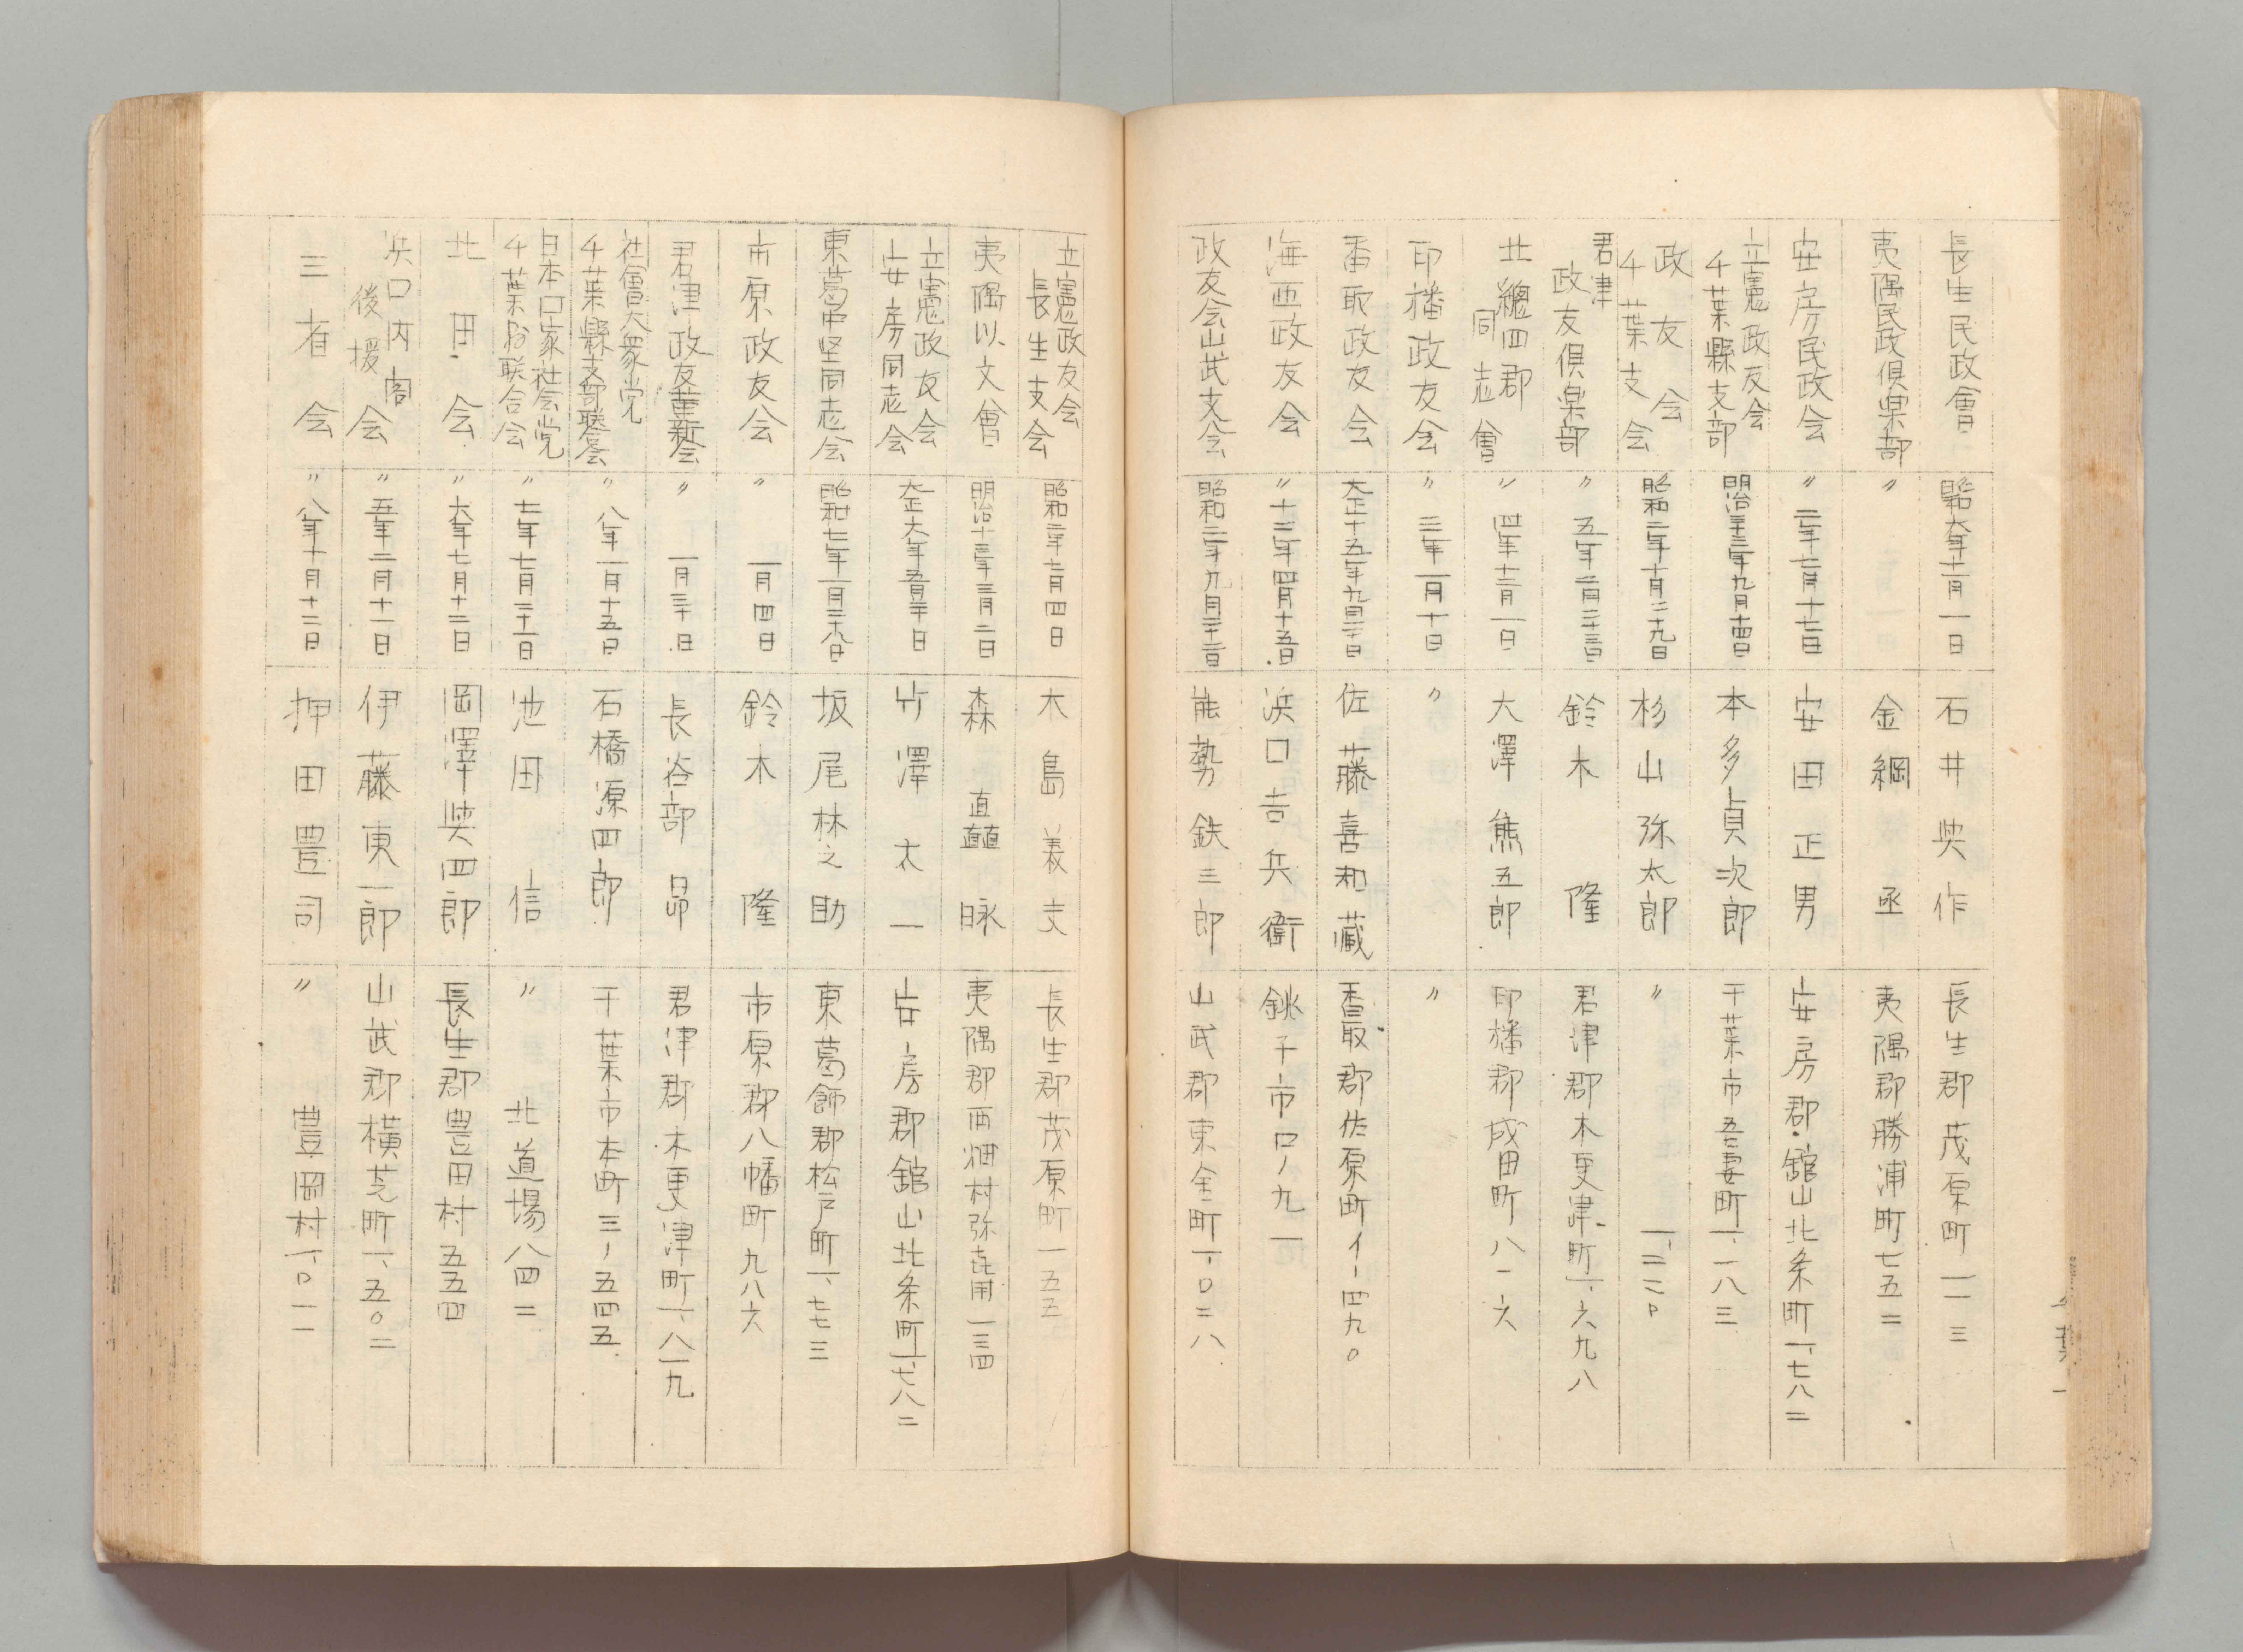 長生民政會 昭和六年十一月一日 石井典作 長生郡茂原町一一三
夷隅民政俱楽部 〃 金綱丞 夷隅郡勝浦町七五二
安房民政会 〃 二年七月十七日 安田正男 安房郡館山北条町一、七八二
立憲政友会千葉縣支部 明治三十三年九月十四日 本多貞次郎 千葉市吾妻町一、一八三
政友会千葉支会 昭和二年十月二十九日 杉山弥太郎 〃 一、二二〇
君津政友俱楽部 〃 五年二月二十三日 鈴木隆 君津郡木更津町一、六九八
北總四郡同志會 〃 四年十二月一日 大澤熊五郎 印旛郡成田町八一六
印旛政友会 〃 三年一月十日 〃 〃
香取政友会 大正十五年九月二十日 佐藤喜和藏 香取郡佐原町イ一四九〇
海匝政友会 〃 十二年四月十五日 浜口吉兵衛 銚子市口ノ九一
政友会山武支会 昭和二年九月二十三日 能勢鉄三郎 山武郡東金町一、〇二八
立憲政友会長生支会 昭和二年七月四日 木島義夫 長生郡茂原町一五五
夷隅以文會 明治十三年三月二日 森直 脉 夷隅郡西畑村弥喜用一三四
立憲政友会安房同志会 大正六年五月二十日 竹澤太一 安房郡館山北条町一、七八二
東葛中堅同志会 昭和七年一月二十八日 坂尾林之助 東葛飾郡松戸町一、七七三
市原政友会 〃 一月四日 鈴木隆 市原郡八幡町九八六
君津政友革新会 〃 一月三十日 長谷部昂 君津郡木更津町一、八一九
社會大衆党千葉縣支部聯合会 〃 八年一月十五日 石橋源四郎 千葉市本町三ノ五四五
日本口家社会党千葉 联合会 〃 七年七月三十一日 池田信 〃 北道場八四二
北田会 〃 六年七月十二日 岡澤奥四郎 長生郡豊田村五五四
浜口内閣後援会 〃 五年二月十一日 伊藤東一郎 山武郡横芝町一、五〇二
三省会 〃 八年十月十二日 押田豊司 〃 豊岡村一、〇一一